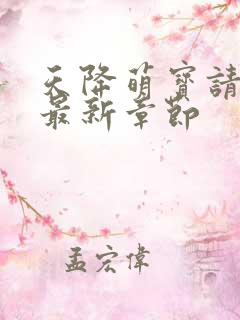 天降萌寶請
最新章節
孟宏偉